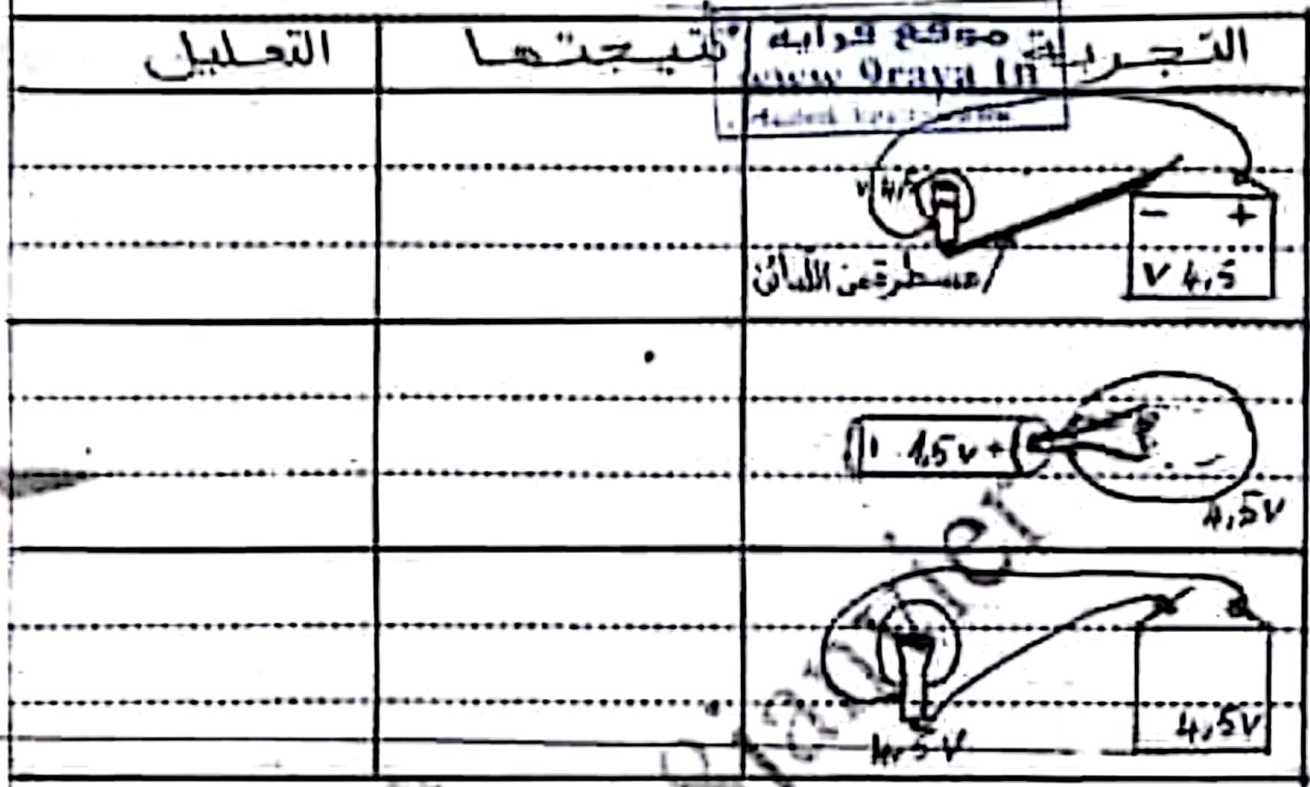 التجربة
نتيجتها
التعليل
موقع قراية
www Qraya tn
v 4,5
- +
v 4,5
مسطرة من اللدائن
1,5 v +
4,5v
4,5v
4,5 v